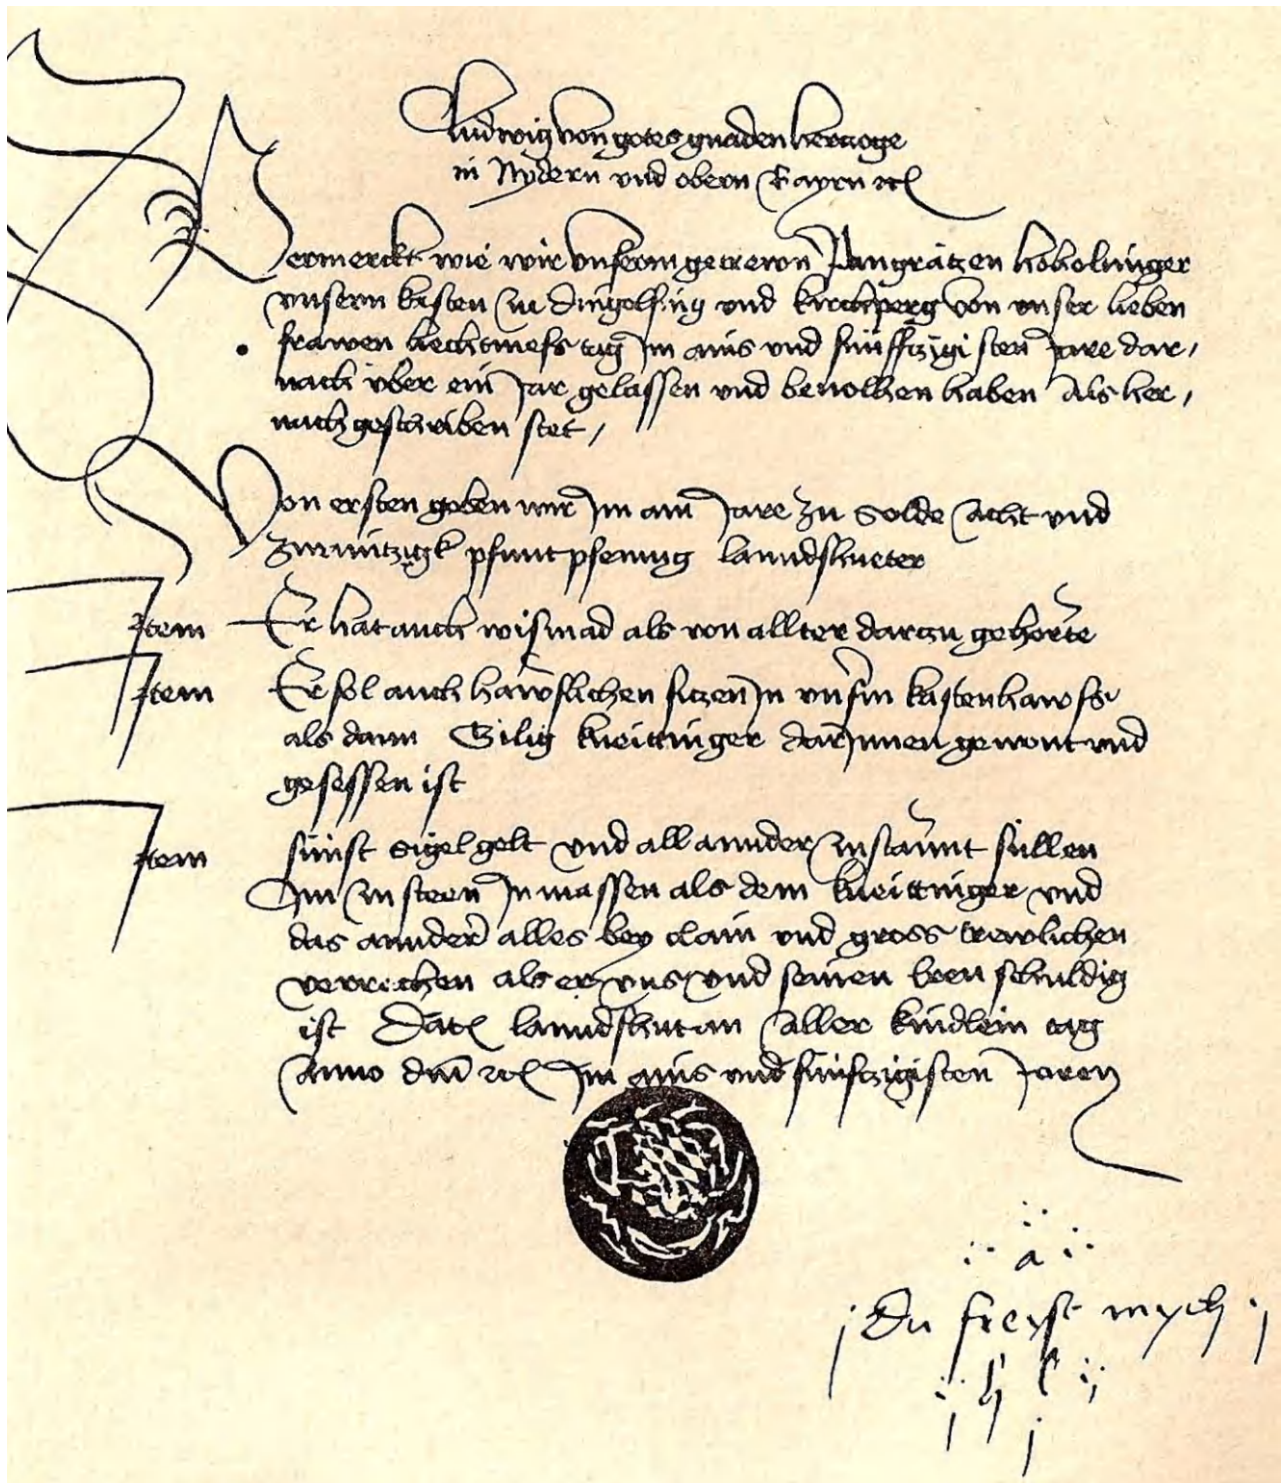 Ludwig von gotes gnaden hertzoge
in Nydern und obern Bayrn etc
Vermerckt wie wir unserm getrewn Pangrätzen hobolzinger
unsern kasten zu dingelfing und kirchperg von unser lieben
frawen liechtmess tag Im ains und fünffzigisten Jare dar /
nach über ein Jar gelassen und bevolhen haben Als her /
nach geschriben stet /
Von ersten geben wir Im ain Jare zu Solde Acht und
zwaintzigk pfunt pfening lanndshueter
Item Er hat auch wismad als von allter darzu gehörte
Item Er sol auch hawslichen sitzen In unserm kastenhawss
als dann Gilig kneittinger darInnen gewont und
gesessen ist
Item sünst sigelgelt und all annder zustannt süllen
Im zu steen In massen als dem kneittinger und
das annder alles bey clain und gross trewlichen
verrechen als er uns und seinen treen schuldig
ist Dat lanndshut an Aller kindlein tag
Anno dni etc Im ains und fünfzigisten Jaren
a
Du freyst mych
h l